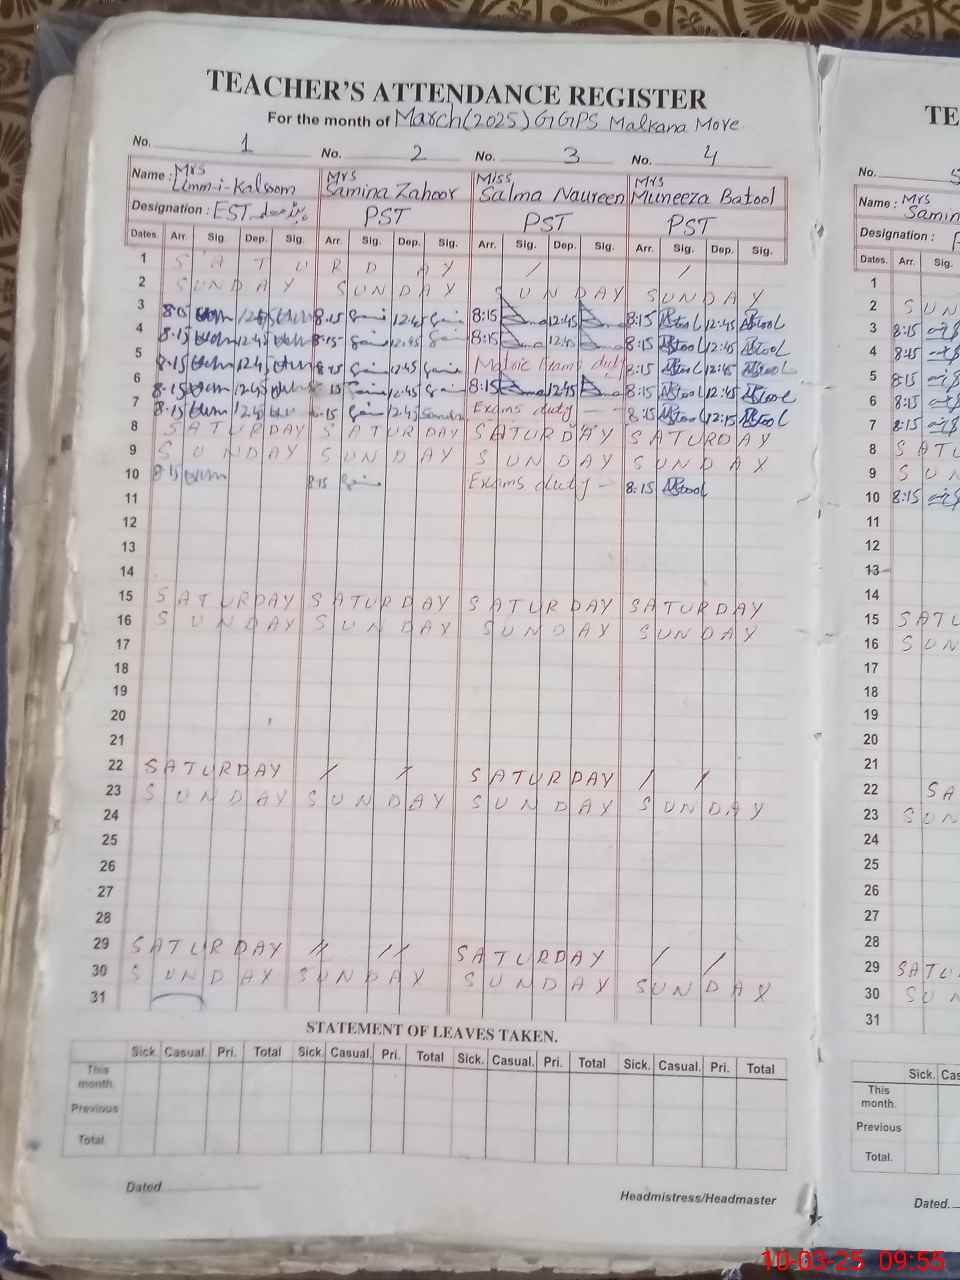 TEACHER'S ATTENDANCE REGISTER
For the month of March (2025) GGPS Malkana Move
No. 1 No. 2 No. 3 No. 4
Name : Mrs Umm-i-Kalsoom Mrs Samina Zahoor Miss Salma Naureen Mrs Muneeza Batool
Designation : EST PST PST PST
Dates. Arr. Sig. Dep. Sig. Arr. Sig. Dep. Sig. Arr. Sig. Dep. Sig. Arr. Sig. Dep. Sig.
1 SATURDAY / /
2 SUNDAY SUNDAY SUNDAY SUNDAY
3 8:15 12:45 8:15 12:45 8:15 12:45 8:15 Batool 12:45 Batool
4 8:15 12:45 8:15 12:45 8:15 12:45 8:15 Batool 12:45 Batool
5 8:15 12:45 8:15 12:45 Matric Exams duty 8:15 Batool 12:45 Batool
6 8:15 12:45 8:15 12:45 8:15 12:45 8:15 Batool 12:45 Batool
7 8:15 12:45 8:15 12:45 Exams duty - - 8:15 Batool 12:15 Batool
8 SATURDAY SATURDAY SATURDAY SATURDAY
9 SUNDAY SUNDAY SUNDAY SUNDAY
10 8:15 8:15 Exams duty - 8:15 Batool
11
12
13
14
15 SATURDAY SATURDAY SATURDAY SATURDAY
16 SUNDAY SUNDAY SUNDAY SUNDAY
17
18
19
20
21
22 SATURDAY / / SATURDAY / /
23 SUNDAY SUNDAY SUNDAY SUNDAY
24
25
26
27
28
29 SATURDAY // // SATURDAY / /
30 SUNDAY SUNDAY SUNDAY SUNDAY
31
STATEMENT OF LEAVES TAKEN.
Sick. Casual. Pri. Total Sick. Casual. Pri. Total Sick. Casual. Pri. Total Sick. Casual. Pri. Total
This month.
Previous
Total.
Dated
Headmistress/Headmaster
TE
No.
Name : Mrs Samin
Designation :
Dates. Arr. Sig.
1
2 SUN
3 8:15
4 8:15
5 8:15
6 8:15
7 8:15
8 SATU
9 SUN
10 8:15
11
12
13
14
15 SATU
16 SUN
17
18
19
20
21
22 SA
23 SUN
24
25
26
27
28
29 SATU
30 SUN
31
Sick. Cas
This month.
Previous
Total.
Dated.
10-03-25 09:55